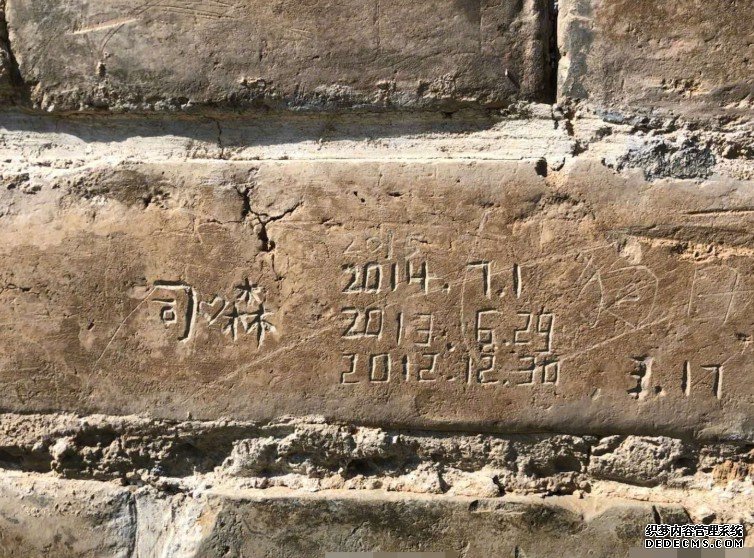 2015
司♡森
2014.7.1
2013.6.29
2012.12.30
3.17
织梦内容管理系统
DEDECMS.COM